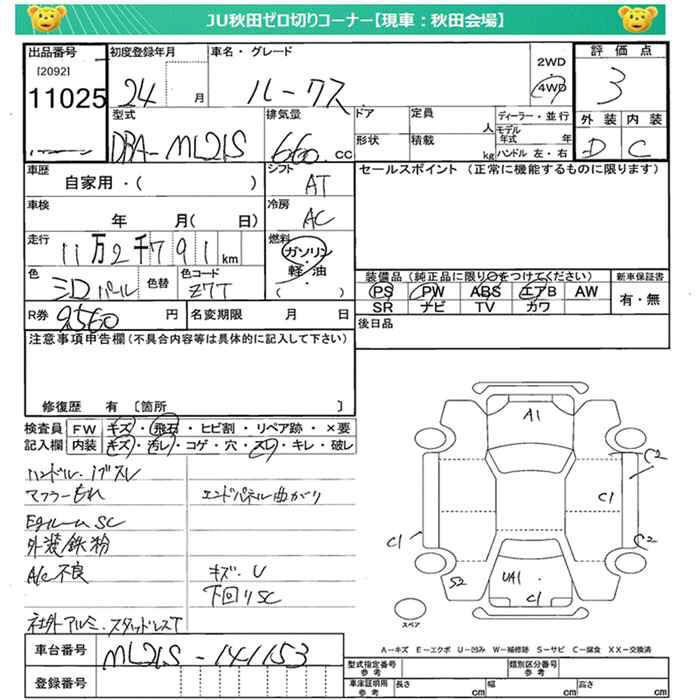 JU秋田ゼロ切りコーナー【現車：秋田会場】
出品番号
[2092]
11025
初度登録年月
24 月
車名・グレード
ルークス
2WD
4WD
評価点
3
外装 内装
D C
型式
DBA-ML21S
排気量
660 cc
ドア
形状
定員 人
積載 kg
ディーラー・並行
モデル年式 年
ハンドル 左・右
車歴
自家用・( )
シフト
AT
セールスポイント (正常に機能するものに限ります)
車検
年 月( 日)
冷房
AC
走行
11万2千791 km
燃料
ガソリン
軽・油
( )
色
シロパール
色替
色コード
Z7T
装備品 (純正品に限り○をつけてください)
PS PW ABS エアB AW
SR ナビ TV カワ
新車保証書
有・無
R券 9560 円
名変期限 月 日
後日品
注意事項申告欄(不具合内容等は具体的に記入して下さい)
修復歴 有 [箇所 ]
検査員記入欄
FW キズ・飛石・ヒビ割・リペア跡・×要
内装 キズ・汚レ・コゲ・穴・スレ・キレ・破レ
ハンドル・
マフラーもれ
エンドパネル曲がり
EgルームSC
外装鉄粉
A/C不良
キズ・U
下回りSC
社外アルミ・スタッドレスT
A1
C2
C1
C1
C2
S2
UA1
C1
スペア
A－キズ E－エクボ U－凹み W－補修跡 S－サビ C－腐食 XX－交換済
車台番号
ML21S-141153
登録番号
型式指定番号
参考
類別区分番号
参考
車庫証明用
参考
長さ cm
幅 cm
高さ cm